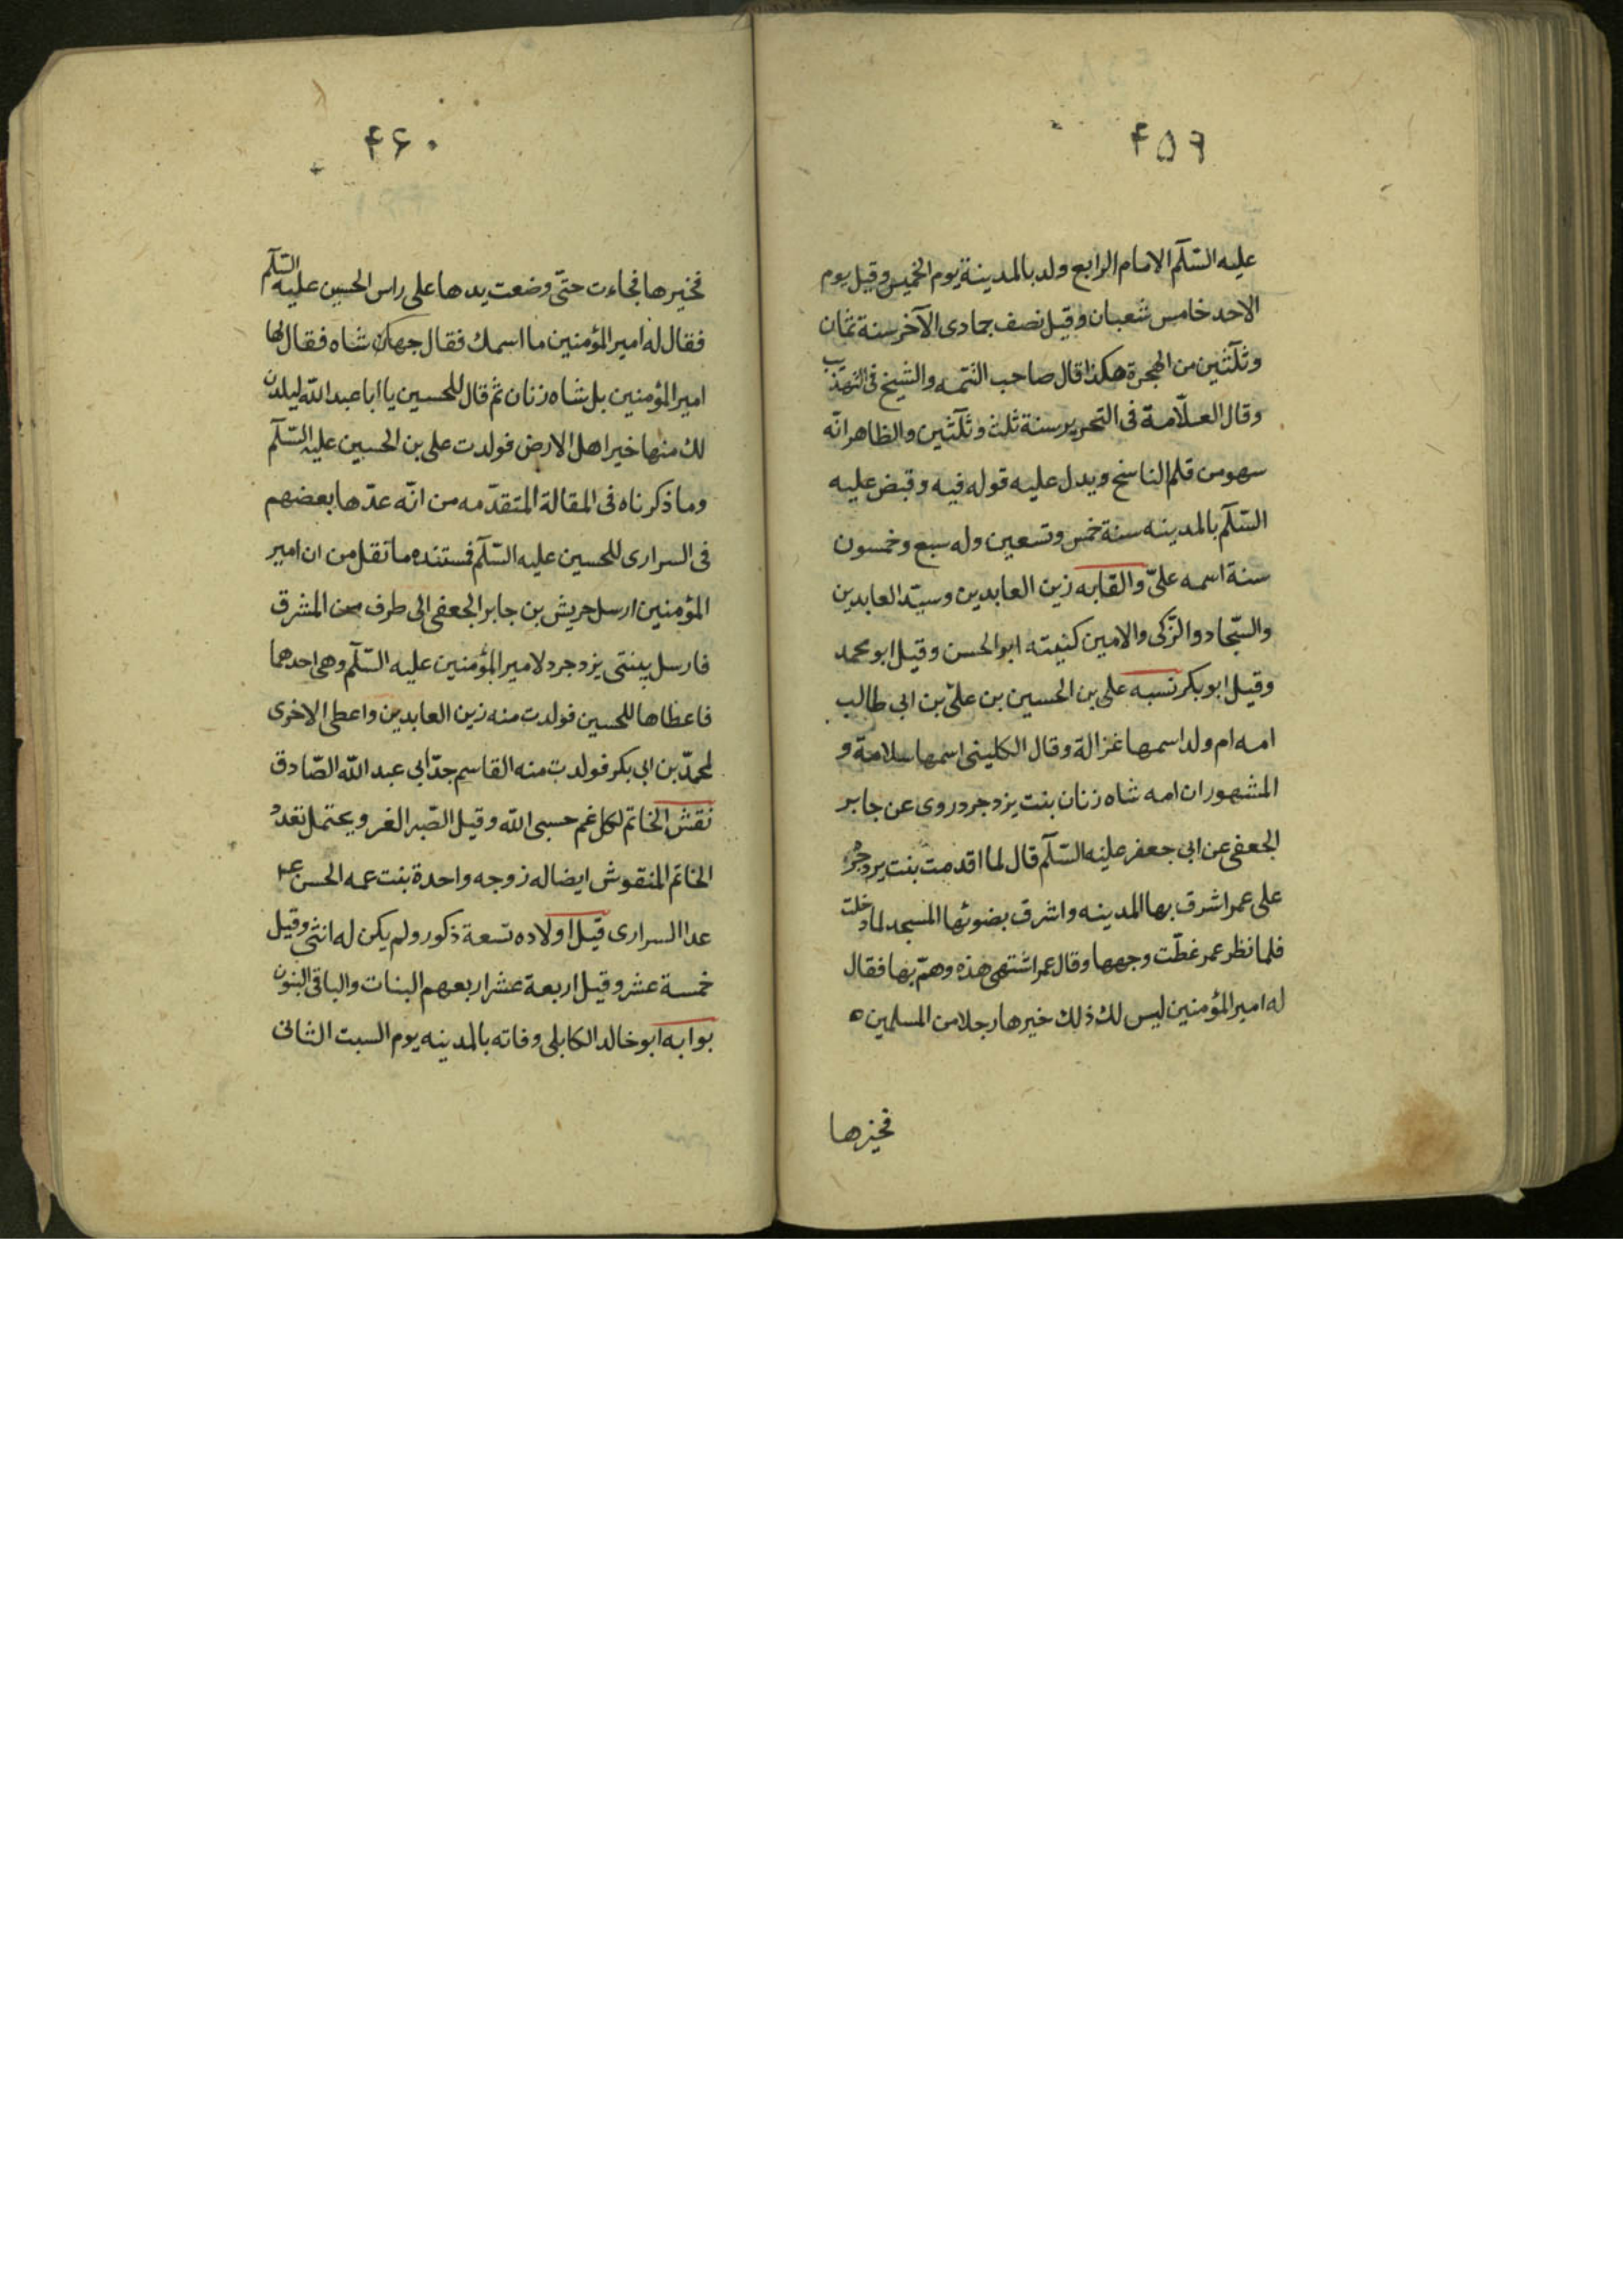 ۴۵۹
علیه السّلٓم الامام الرابع ولد بالمدینة یوم الخمیس وقیل یوم
الاحد خامس شعبان وقیل نصف جمادی الآخر سنة ثمان
وثلٓثین من الهجرة هکذا قال صاحب التتمه والشیخ فی التهذیب
وقال العلّامة فی التحریر سنة ثلث وثلٓثین والظاهر انّه
سهو من قلم الناسخ ویدل علیه قوله فیه وقبض علیه
السّلٓم بالمدینه سنة خمس وتسعین وله سبع وخمسون
سنة اسمه علیّ والقابه زین العابدین وسیّد العابدین
والسّجاد والزّکی والامین کنیته ابو الحسن وقیل ابو محمد
وقیل ابو بکر نسبه علی بن الحسین بن علیّ بن ابی طالب
امه ام ولد اسمها غزالة وقال الکلینی اسمها سلامة و
المشهور ان امه شاه زنان بنت یزدجرد روی عن جابر
الجعفی عن ابی جعفر علیه السّلٓم قال لما اقدمت بنت یزدجرد
علی عمر اشرق بها المدینه واشرق بضوئها المسجد لما دخلت
فلما نظر عمر غطّت وجهها وقال عمر اشتهی هذه وهمّ بها فقال
له امیر المؤمنین لیس لك ذلك خیرها رجلا من المسلمین ه
فخیرها
۴۶۰
فخیرها فجاءت حتّی وضعت یدها علی راس الحسین علیه السّلٓم
فقال له امیر المؤمنین ما اسمك فقال جهان شاه فقال لها
امیر المؤمنین بل شاه زنان ثم قال للحسین یا ابا عبد اللّه لیلدن
لك منها خیر اهل الارض فولدت علی بن الحسین علیه السّلٓم
وما ذکرناه فی المقالة المتقدّمه من انّه عدّها بعضهم
فی السراری للحسین علیه السّلٓم فمستنده ما نقل من ان امیر
المؤمنین ارسل حریش بن جابر الجعفی الی طرف من المشرق
فارسل ببنتی یزدجرد لامیر المؤمنین علیه السّلٓم وهی احدهما
فاعطاها للحسین فولدت منه زین العابدین واعطی الاخری
لمحمّد بن ابی بکر فولدت منه القاسم جدّ ابی عبد اللّه الصّادق
نقش الخاتم لکل غم حسبی اللّه وقیل الصّبر الغر ویحتمل تعدد
الخاتم المنقوش ایضا له زوجه واحدة بنت عمه الحسن عم
عدا السراری قیل اولاده تسعة ذکور ولم یکن له انثی وقیل
خمسة عشر وقیل اربعة عشر اربعهم البنات والباقی البنون
بوابه ابو خالد الکابلی وفاته بالمدینه یوم السبت الثانی